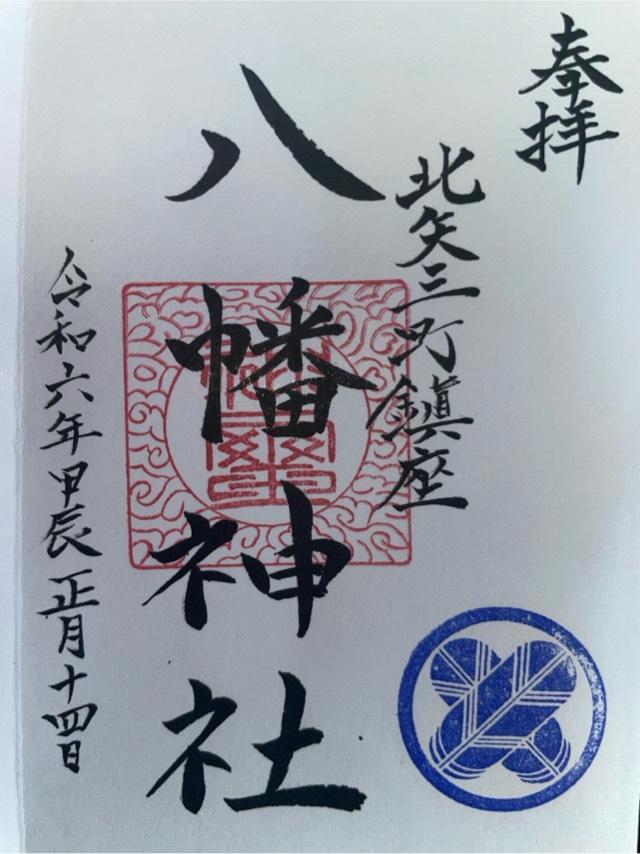 奉拝
北矢三町鎮座
八幡神社
令和六年甲辰正月十四日